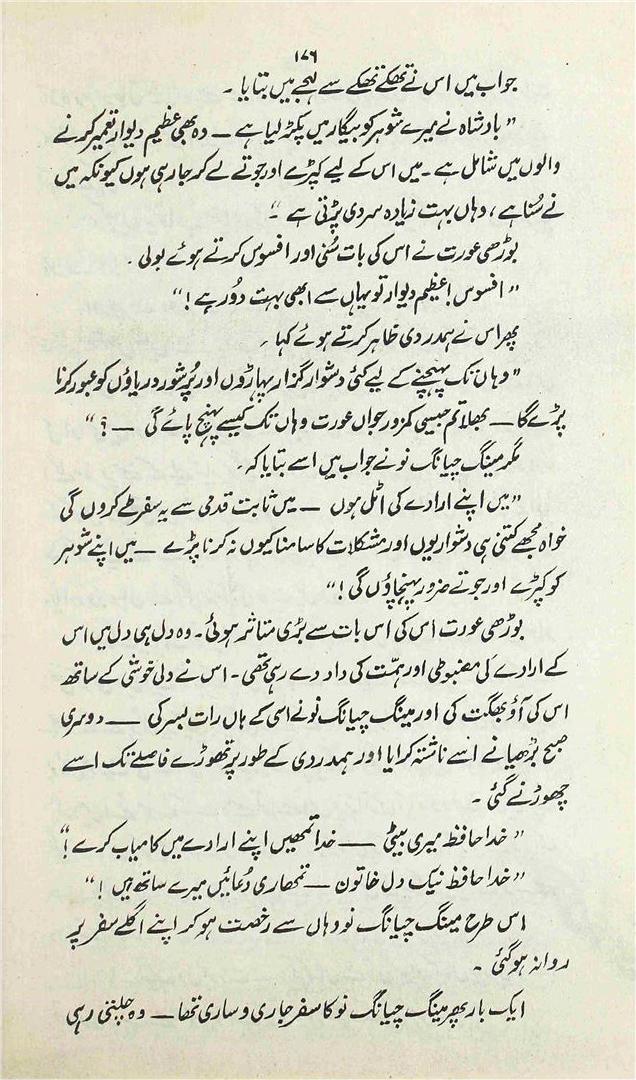 ۱۷۶
جواب میں اس نے تھکے تھکے سے لہجے میں بتایا ۔
”بادشاہ نے میرے شوہر کو بیگار میں پکڑ لیا ہے — وہ بھی عظیم دیوار تعمیر کرنے
والوں میں شامل ہے ۔ میں اس کے لیے کپڑے اور جوتے لے کر جا رہی ہوں کیونکہ میں
نے سُنا ہے ، وہاں بہت زیادہ سردی پڑتی ہے ۔“
بوڑھی عورت نے اس کی بات سُنی اور افسوس کرتے ہوئے بولی ۔
”افسوس ! عظیم دیوار تو یہاں سے ابھی بہت دُور ہے !“
پھر اس نے ہمدردی ظاہر کرتے ہوئے کہا ۔
”وہاں تک پہنچنے کے لیے کئی دشوار گزار پہاڑوں اور پُر شور دریاؤں کو عبور کرنا
پڑے گا — بھلا تم جیسی کمزور جواں عورت وہاں تک کیسے پہنچ پائے گی — ؟“
مگر مینگ چیانگ نو نے جواب میں اسے بتایا کہ ۔
”میں اپنے ارادے کی اٹل ہوں — میں ثابت قدمی سے یہ سفر طے کروں گی
خواہ مجھے کتنی ہی دشواریوں اور مشکلات کا سامنا کیوں نہ کرنا پڑے — میں اپنے شوہر
کو کپڑے اور جوتے ضرور پہنچاؤں گی !“
بوڑھی عورت اس کی اس بات سے بڑی متاثر ہوئی ۔ وہ دل ہی دل میں اس
کے ارادے کی مضبوطی اور ہمّت کی داد دے رہی تھی ۔ اس نے دلی خوشی کے ساتھ
اس کی آؤ بھگت کی اور مینگ چیانگ نو نے اسی کے ہاں رات بسر کی — دوسری
صبح بڑھیا نے اُسے ناشتہ کرایا اور ہمدردی کے طور پر تھوڑے فاصلے تک اسے
چھوڑنے گئی ۔
”خدا حافظ میری بیٹی — خدا تمھیں اپنے ارادے میں کامیاب کرے !“
”خدا حافظ نیک دل خاتون — تمھاری دُعائیں میرے ساتھ ہیں !“
اس طرح مینگ چیانگ نو وہاں سے رخصت ہو کر اپنے اگلے سفر پر
روانہ ہو گئی ۔
ایک بار پھر مینگ چیانگ نو کا سفر جاری و ساری تھا — وہ چلتی رہی